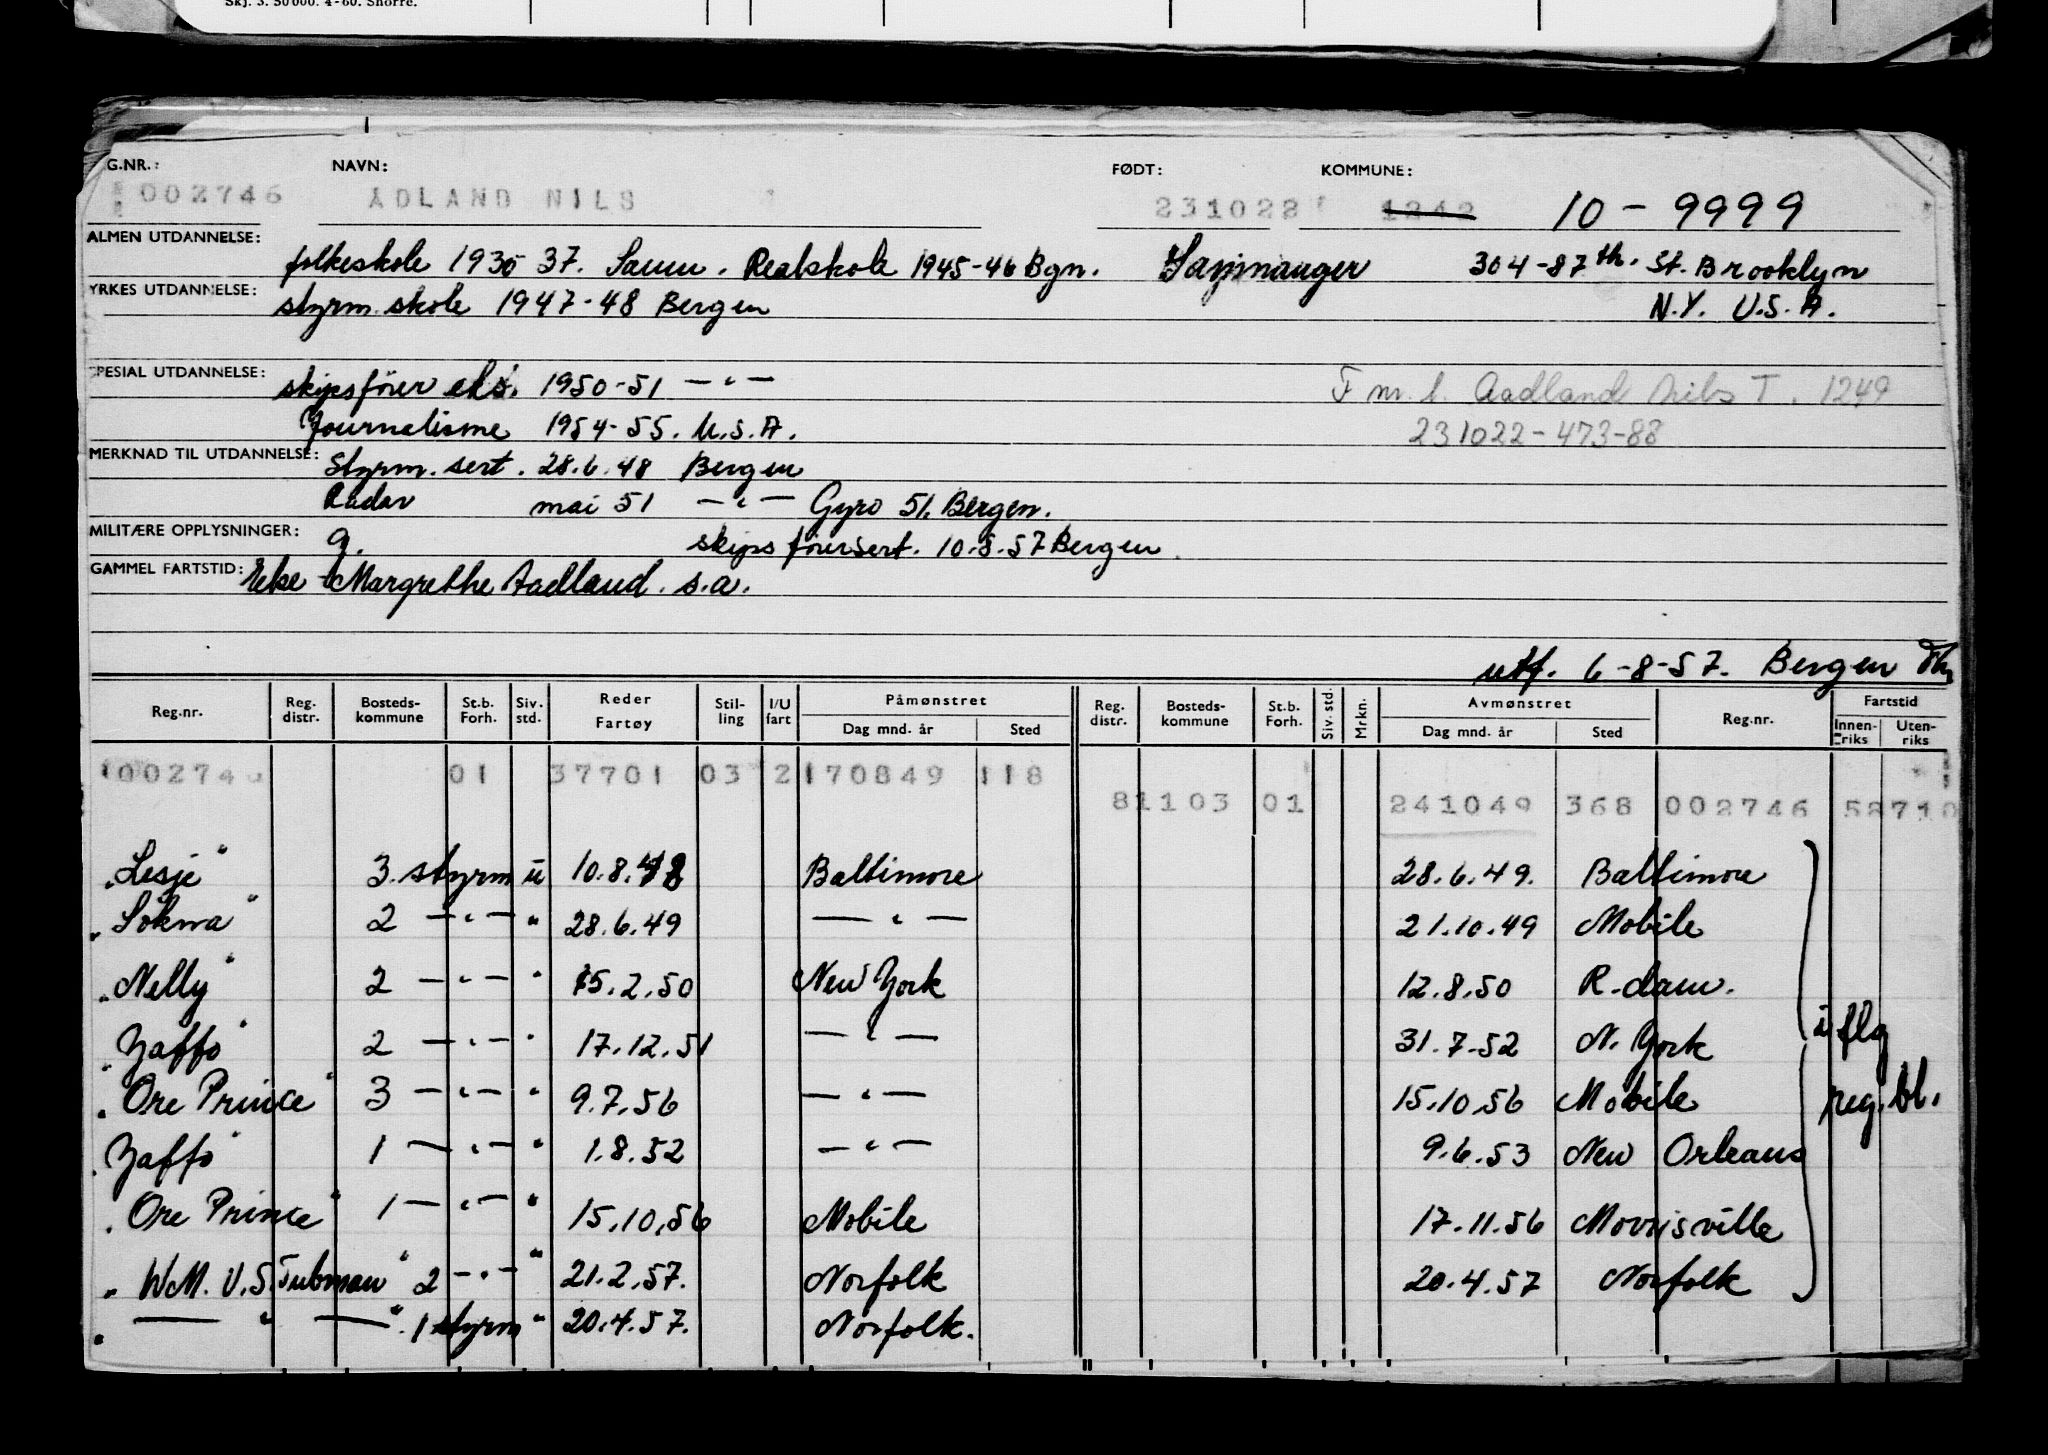 Skj. 3. 50 000. 4-60. Snorre.
G.NR.: NAVN: FØDT: KOMMUNE:
002746 ÅDLAND NILS 231022 1242 10 - 9999
ALMEN UTDANNELSE: folkeskole 1930 37. Samn. Realskole 1945-46 Bgn. Samnanger 304-87th. St. Brooklyn
YRKES UTDANNELSE: styrm. skole 1947-48 Bergen N.Y. U.S.A.
SPESIAL UTDANNELSE: skipsförer eks. 1950-51 — " — F m. l. Aadland Nils T. 1249
Journalisme 1954-55. U.S.A. 231022-473-88
MERKNAD TIL UTDANNELSE: Styrm. sert. 28.6.48 Bergen
Radar mai 51 — " — Gyro 51. Bergen.
MILITÆRE OPPLYSNINGER: g. skipsförersert. 10.8.57 Bergen
GAMMEL FARTSTID: Eke Margrethe Aadland. s.a.
utf. 6-8-57. Bergen
Reg.nr. Reg. distr. Bosteds- kommune St.b. Forh. Siv. std. Reder Fartøy Stil- ling I/U fart Påmønstret Dag mnd. år Sted Reg. distr. Bosteds- kommune St.b. Forh. Siv. std. Mrkn. Avmønstret Dag mnd. år Sted Reg.nr. Fartstid Innen- riks Uten- riks
002746 01 37701 03 2 170849 118
81103 01 241049 368 002746 58710
"Lesje" 3. styrm u 10.8.48 Baltimore 28.6.49. Baltimore
"Sokna" 2 — " — " 28.6.49 — " — 21.10.49 Mobile
"Nelly" 2 — " — " 15.2.50 New York 12.8.50 R.dam.
"Jaffo" 2 — " — " 17.12.51 — " — 31.7.52 N. York i flg
"Ore Prince" 3 — " — " 9.7.56 — " — 15.10.56 Mobile reg. bl.
"Jaffo" 1 — " — " 1.8.52 — " — 9.6.53 New Orleans
"Ore Prince" 1 — " — " 15.10.56 Mobile 17.11.56 Morrisville
"WM. V.S. Tubman" 2 — " — " 21.2.57. Norfolk 20.4.57 Norfolk
" — " — " 1 styrm " 20.4.57. Norfolk.